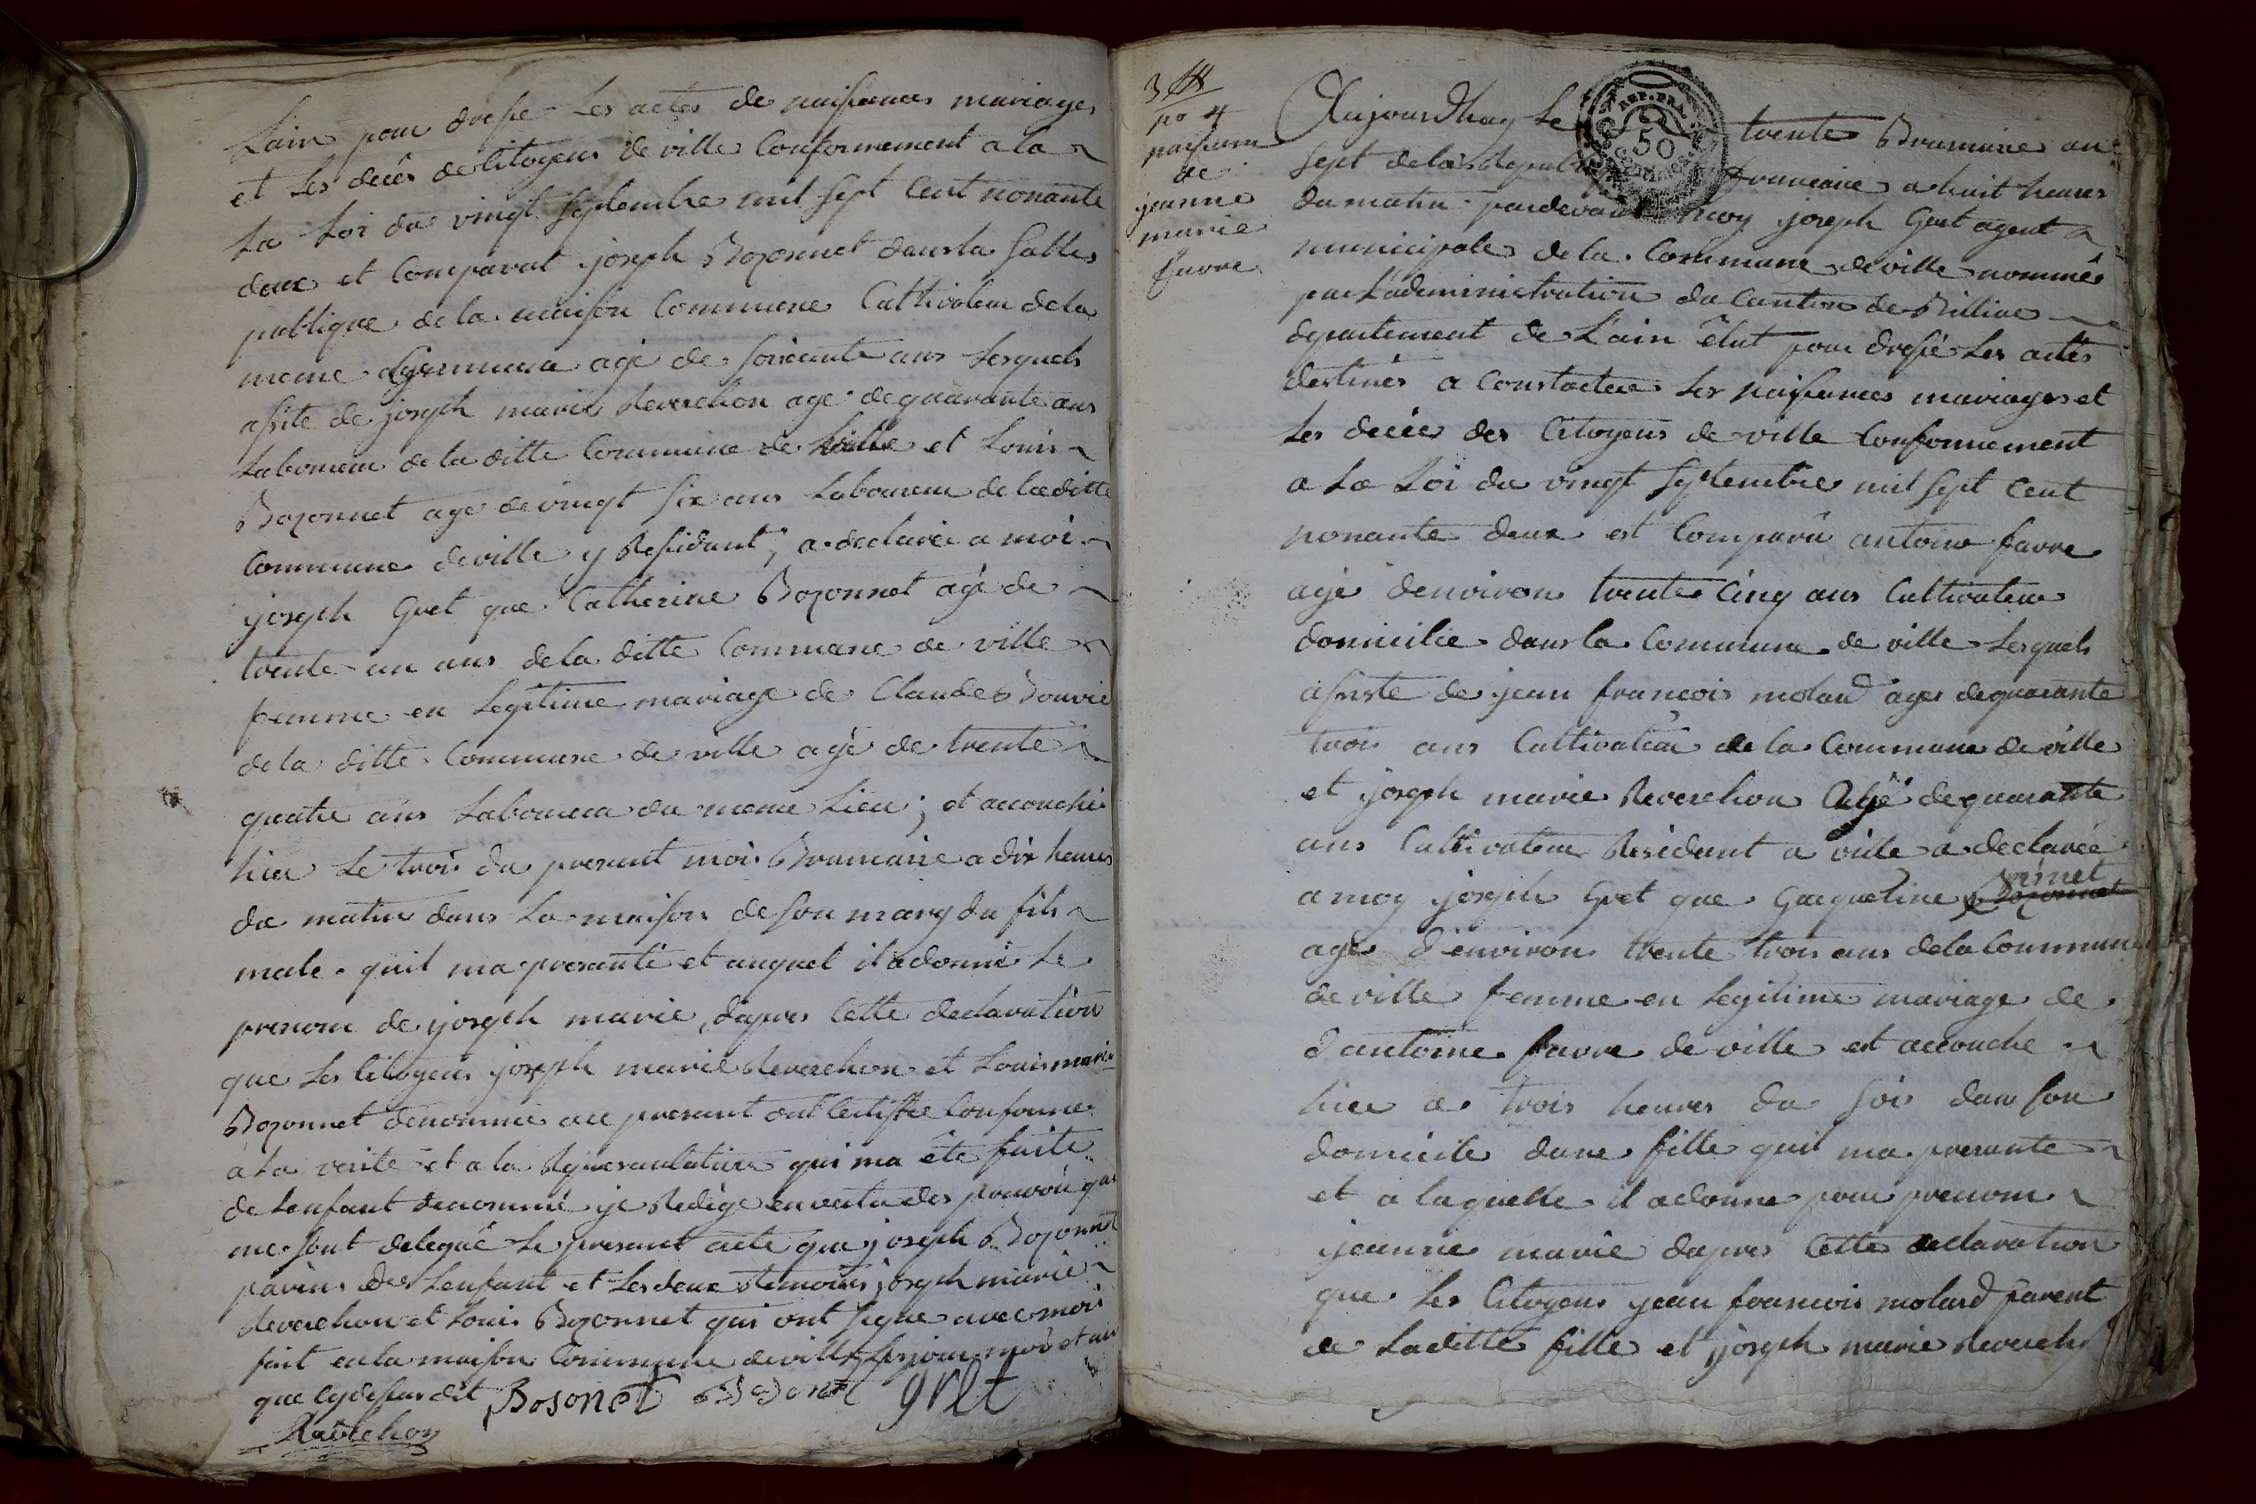 Lain pour dresse les actes de naissances mariages
et les decês de Citoyens de ville Conformement a la
La Loi du vingt septembre mil sept Cent nonante
deux et Comparut joseph Bozonnet dans la salle
publique de la maison Commune Cultivateur de la
meme Commune agé de soixante ans Lesquels
asisté de joseph marie Reverchon age de quarante ans
Laboureur de la ditte Commune de ville et Louis
Bozonnet age de vingt six ans Laboureur de la ditte
Commune de ville y Residant, a declaré a moi
joseph Gret que Catherine Bozonnet agé de
trente un ans de la ditte Commune de ville
femme en Legitime mariage de Claude
de la ditte Commune de ville agé de trente
quatre ans Laboureur du meme Lieu ; et accouché
hier Le trois du present mois Brumaire a dix heures
du matin dans La maison de son mary du fils
male quil ma presanté et auquel il adonné Le
prenom de joseph marie, dapres Cette declaration
que Les Citoyens joseph marie Reverchon et Louis marie
Bozonnet denommé au present ont Certiffié Conforme
a La verité et a la Representation qui ma été faite
de Lenfant denommé je Redige en vertu des pouvoir qui
me sont delegué Le present acte que joseph Bozonnet
parins de Lenfant et Les deux temoins joseph marie
Reverchon et Louis Bozonnet qui ont signe avec moi
fait en la maison Commune de ville Les jour mois et an
que Cy dessus dit Bosonet gret
Reverchon
no 4
de
jeanne
marie
favre
Aujourdhuy Le trente Brumaire an
sept de la Republique francaise a huit heures
du matin pardevant moy joseph Gret agent
municipale de la Commune de ville nommé
par Ladministration du Canton de
departement de Lain élut pour dressé Les actes
destinés a Constater Les naissances mariages et
Les decés des Citoyens de ville Conformement
a La Loi du vingt septembre mil sept Cent
nonante deux est Comparû antoine favre
agé denviron trente Cinq ans Cultivateur
domicilié dans la Commune de ville Lesquels
asisste de jean francois molard agé de quarante
trois ans Cultivateur de la Commune de ville
et joseph marie Reverchon Agé de quarante
ans Cultivateur Residant a ville a declarée
a moy joseph Gret que Gacqueline Bozonnet
agé d'environ trente trois ans de la Commune
de ville femme en Legitime mariage de
d'antoine favre de ville est accouche
hier a trois heures du soir dans son
domicile dune fille quil ma presanté
et a laquelle il adonné pour prenom
jeanne marie dapres Cette declaration
que Les Citoyens jean francois molard parent
de Laditte fille et joseph marie Reverch
REP. FRA.
50